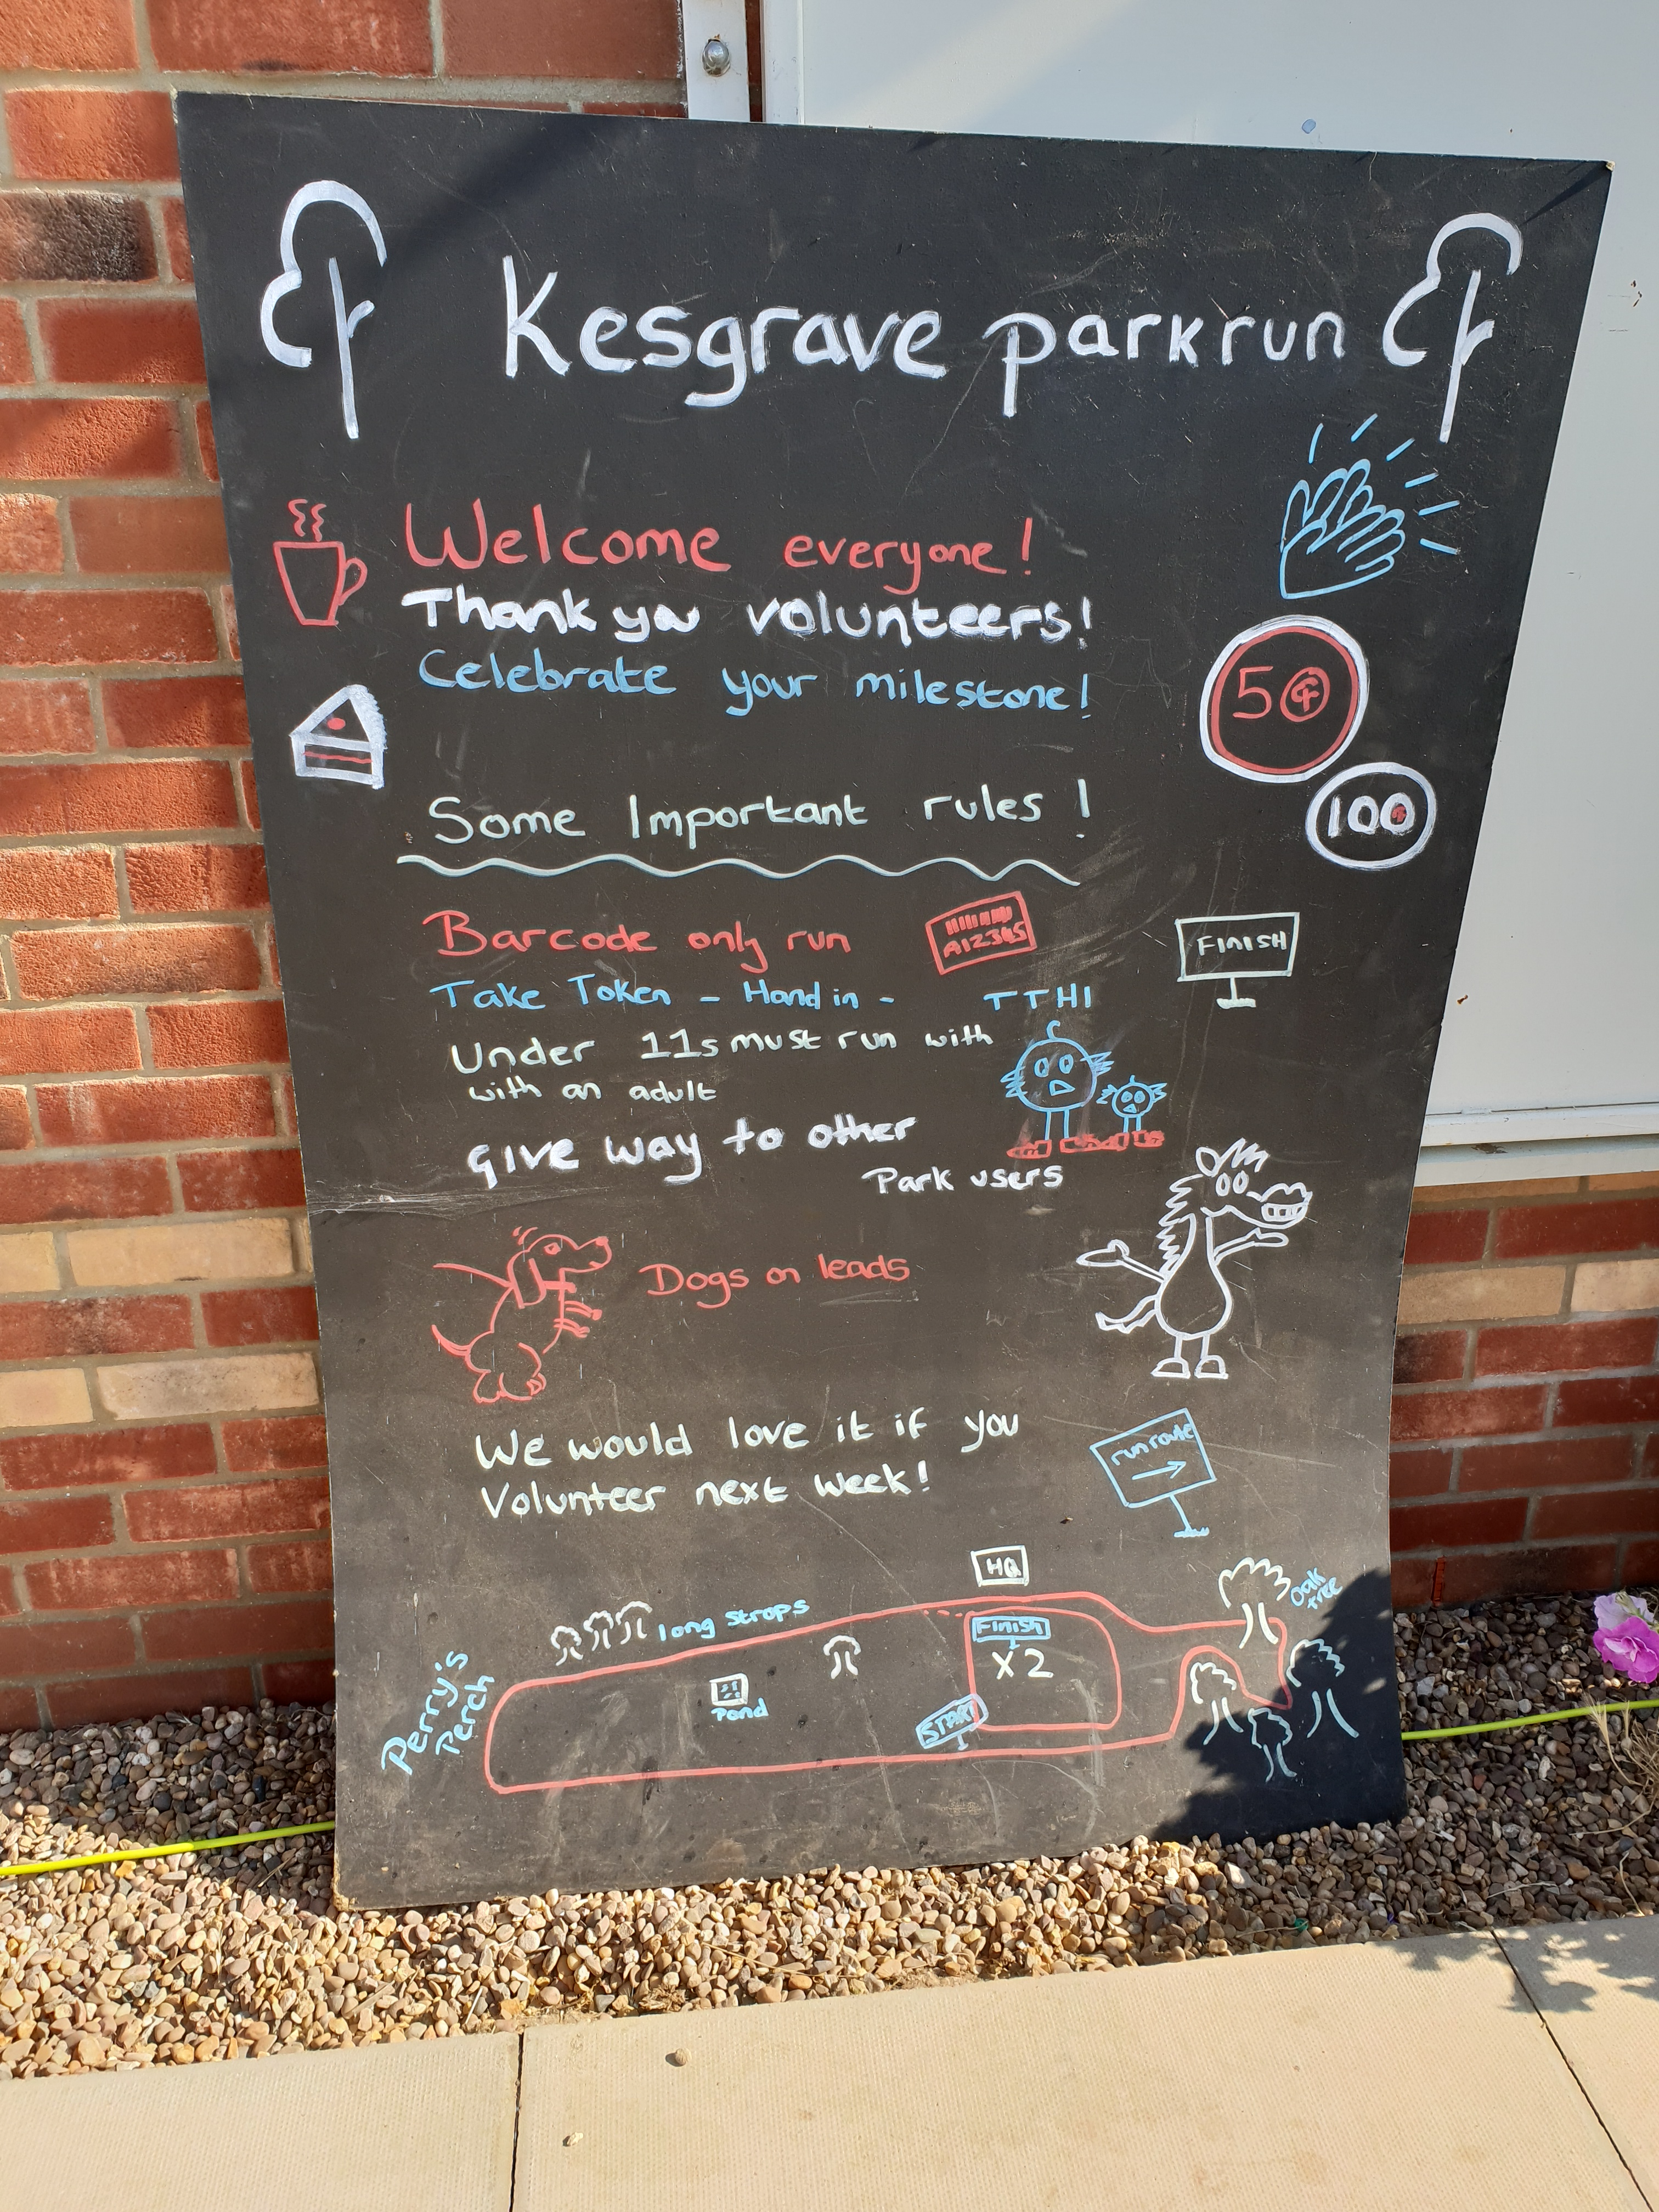 Kesgrave parkrun
Welcome everyone!
Thank you volunteers!
Celebrate your milestone!
50
100
Some Important rules!
Barcode only run
A12345
FINISH
Take Token - Hand in -
TTHI
Under 11s must run with
with an adult
give way to other
Park users
Dogs on leads
We would love it if you
Volunteer next week!
run route
HQ
Oak
tree
long strops
Finish
X2
Perry's
Perch
Pond
START